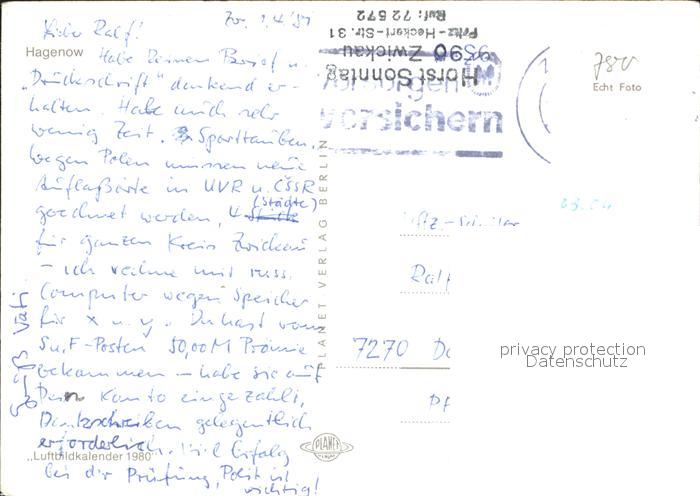 Zw. 1.4.81
Lieber Ralf!
Hagenow
Habe Deinen Brief u.
„Drückschrift" dankend er-
halten. Habe auch sehr
wenig Zeit. Sporttauben.
Wegen Polen müssen neue
Auflaßorte in UVR u. ČSSR
geordnet werden, 4 (Städte)
für ganzen Kreis Zwickau
– ich rechne mit russ.
Computer wegen Speicher
für x u. y. Du hast vom
S.u.F-Posten 50,00 M Prämie
bekommen – habe sie auf
Dein Konto eingezahlt,
Dankschreiben gelegentlich
erforderlich. Viel Erfolg
„Luftbildkalender 1980"
bei der Prüfung, Polit ist
wichtig!
Vati
PLANET VERLAG BERLIN
PLANET
Horst Sonntag
9590 Zwickau
Fritz-Heckert-Str. 31
Ruf: 72 572
vorsorgen
versichern
Echt Foto
Uffz.-Schüler
Ralf
7270 De
PF
privacy protection
Datenschutz